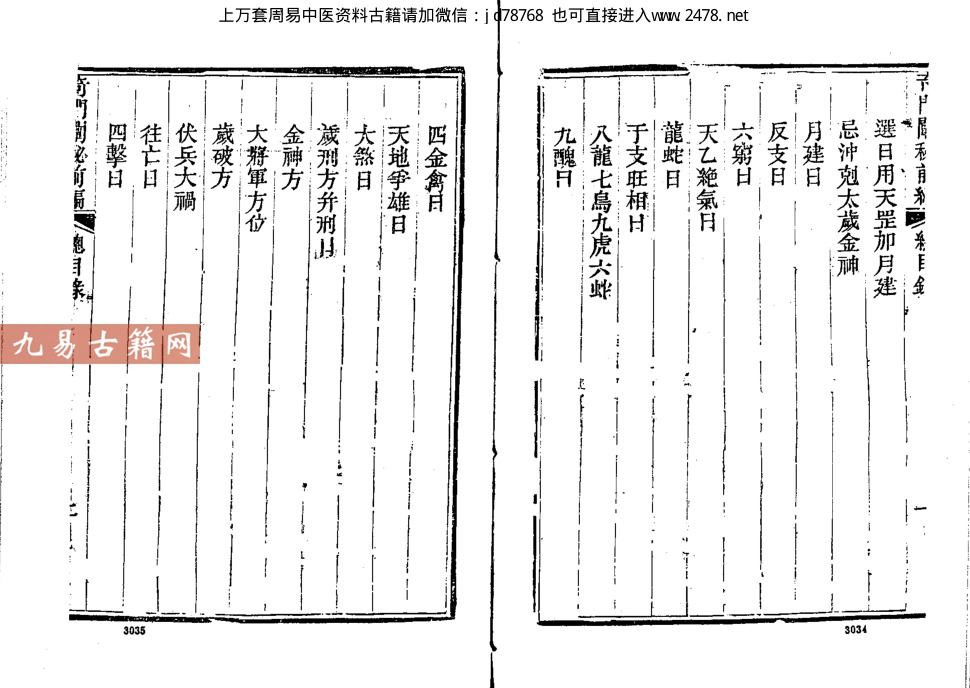 上万套周易中医资料古籍请加微信：jd78768 也可直接进入www.2478.net
選日用天罡加月建
忌沖剋太歲金神
月建日
反支日
六窮日
天乙絶氣日
龍蛇日
干支旺相日
八龍七鳥九虎六蛇
九醜日
3034
四金禽日
天地爭雄日
大煞日
歲刑方弁刑日
金神方
大將軍方位
歲破方
伏兵大禍
往亡日
四擊日
奇門闡秘前編
總目錄
3035
九易古籍网